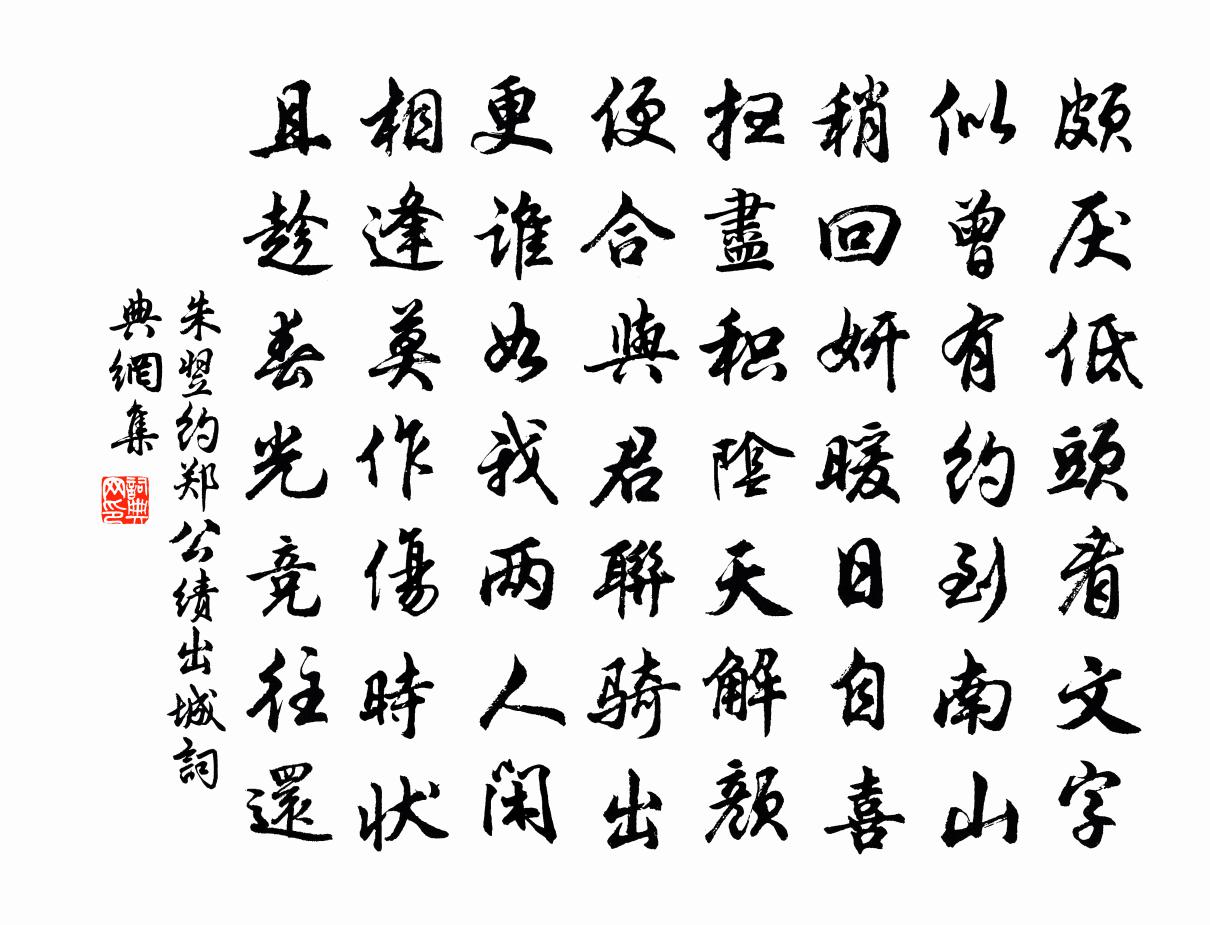 頗厌低頭看文字
似曾有約到南山
稍回妍暖日自喜
扫盡积陰天解顏
便合與君聯骑出
更谁如我两人闲
相逢莫作傷時状
且趁春光竞往還
朱翌约郑公绩出城詞
典網集
詞典网印